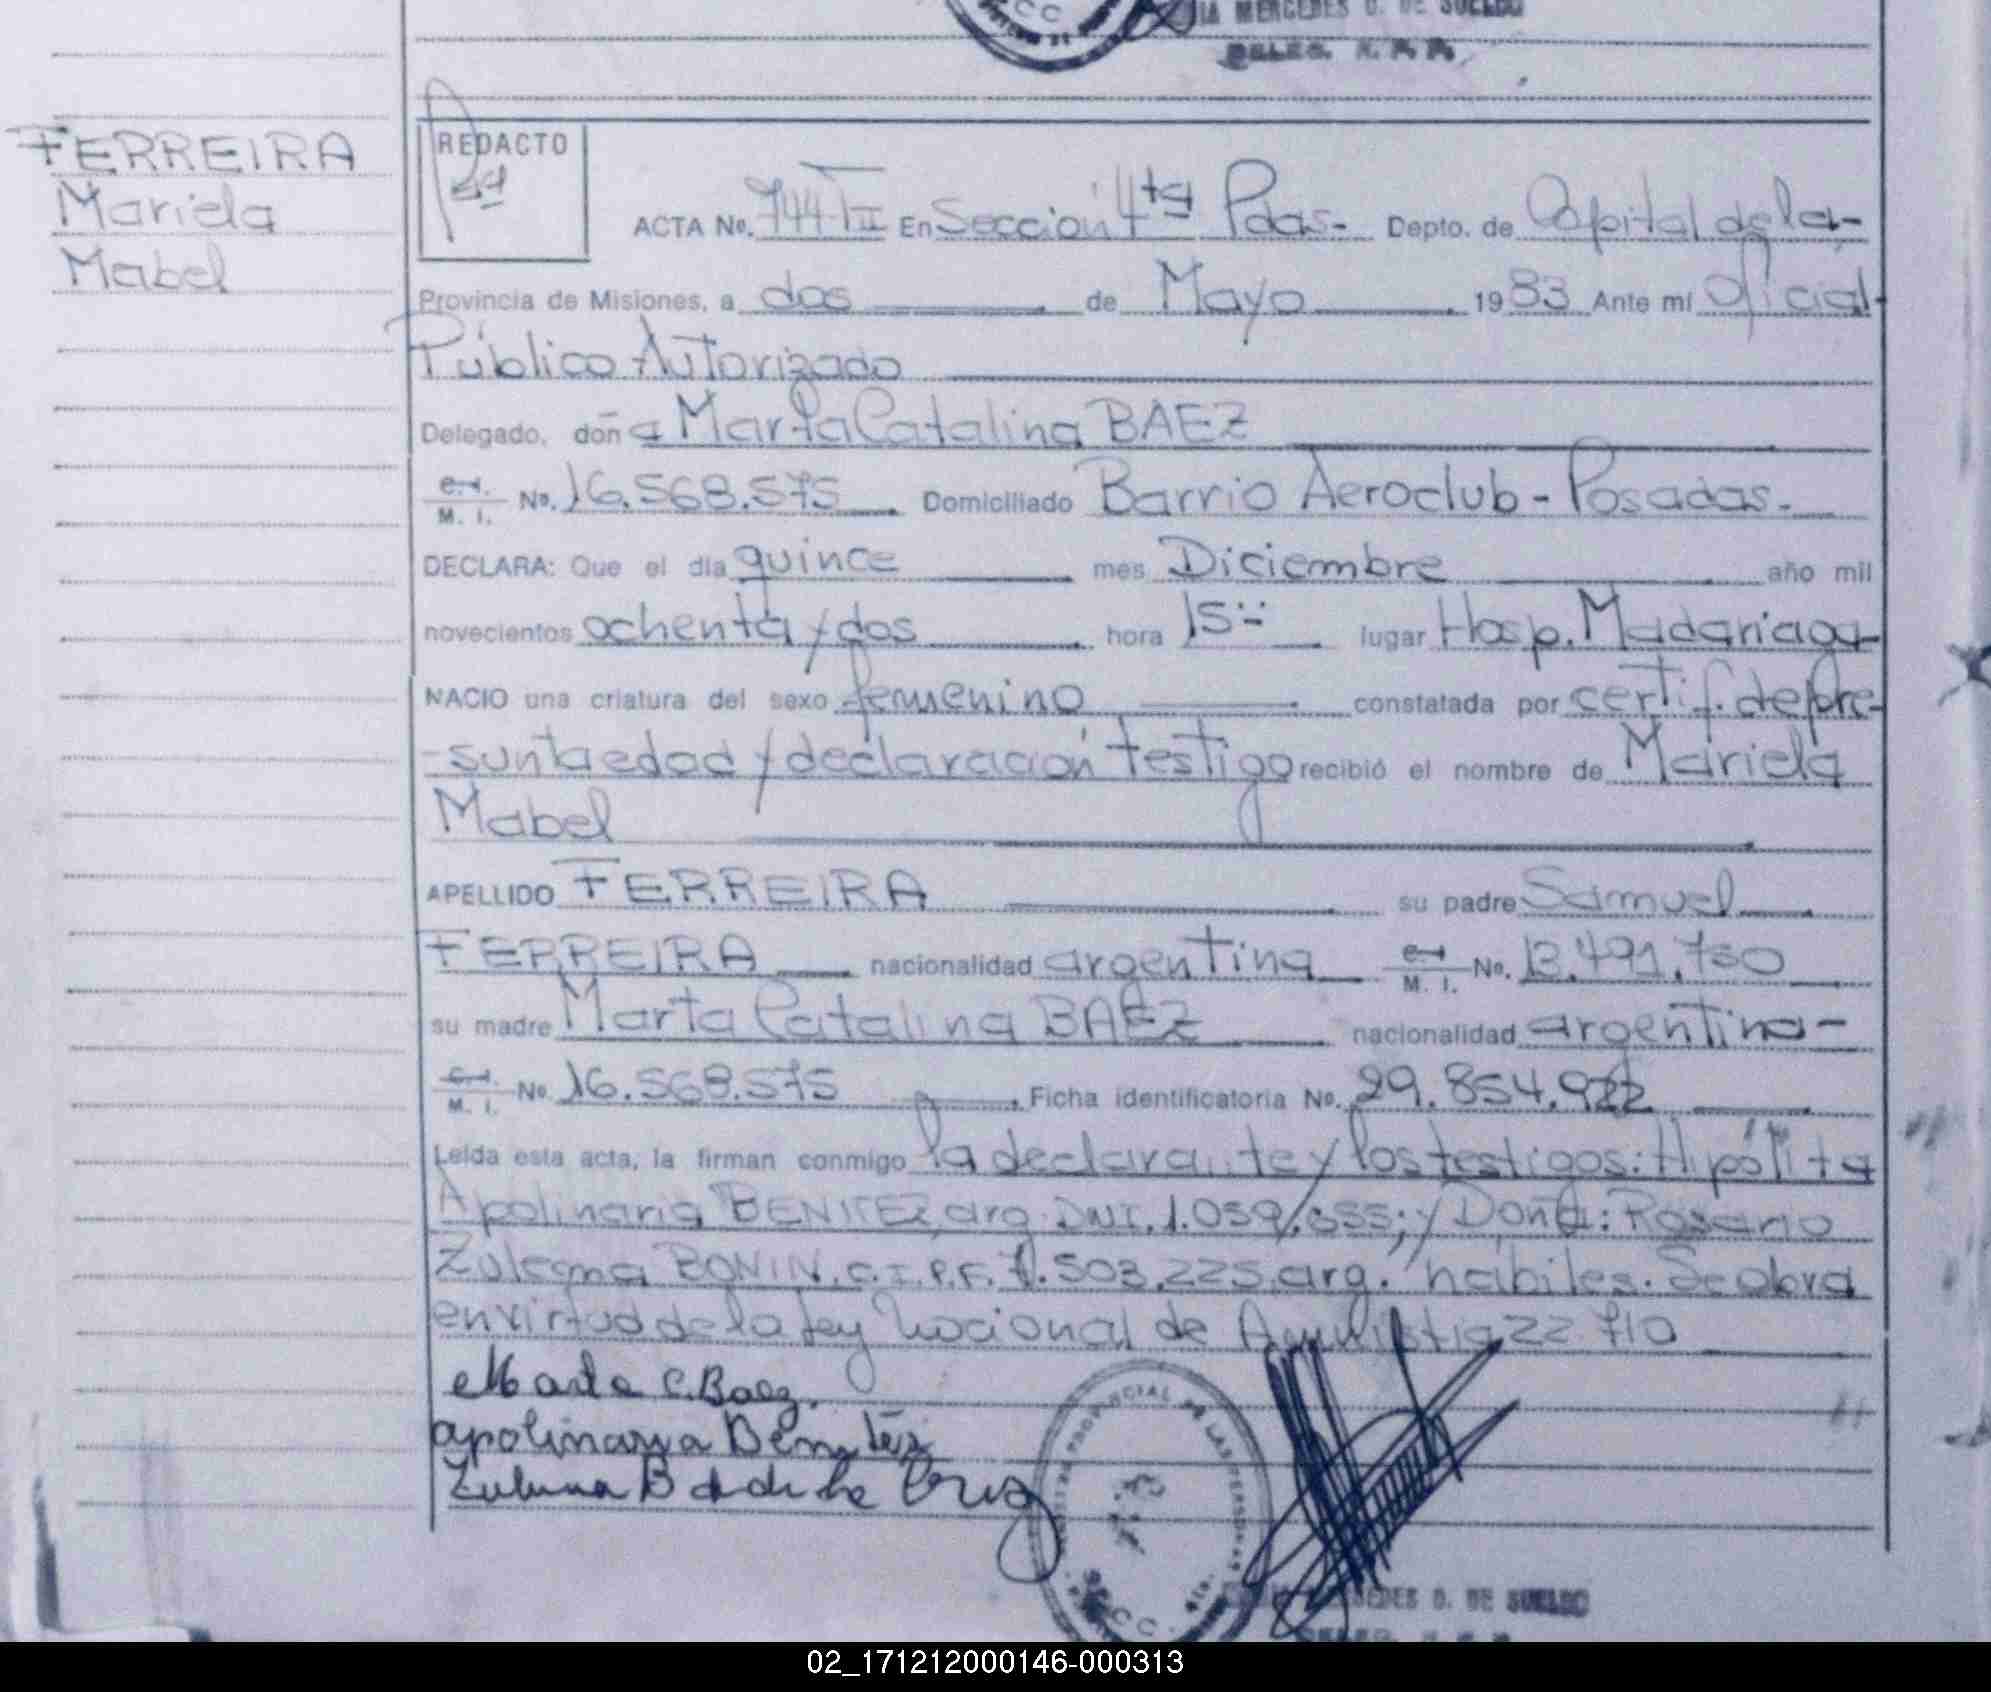 MERCEDES D. DE SUELDO
DELEG. R.P.P.
FERREIRA
Mariela
Mabel
REDACTO
ACTA No. 744 T II En Sección 4ta Pdas- Depto. de Capital de la-
Provincia de Misiones, a dos de Mayo 1983 Ante mí Oficial-
Público Autorizado
Delegado, doña Marta Catalina BAEZ
M. I. No. 16.568.575 Domiciliado Barrio Aeroclub - Posadas-
DECLARA: Que el día quince mes Diciembre año mil
novecientos ochenta y dos hora 15 lugar Hosp. Madariaga-
NACIO una criatura del sexo femenino constatada por certif. de pre-
-sunta edad y declaración testigo recibió el nombre de Mariela
Mabel
APELLIDO FERREIRA su padre Samuel
FERREIRA nacionalidad argentina M. I. No. 13.491.750
su madre Marta Catalina BAEZ nacionalidad argentina-
M. I. No. 16.568.575 Ficha identificatoria No. 29.854.922
Leída esta acta, la firman conmigo la declarante y los testigos: Hipólita
Apolinaria BENITEZ, arg. DNI. 1.059.655; y Doña: Rosario
Zulema BONIN. C.I.P.F. 503.225. arg. hábiles. Se obra
en virtud de la ley Nacional de Amnistia 22 710
Marta C. Baez.
apolinaria Benitez
Zulema B de de la Cruz
PROVINCIAL DE LAS PERSONAS
MERCEDES D. DE SUELDO
02_171212000146-000313